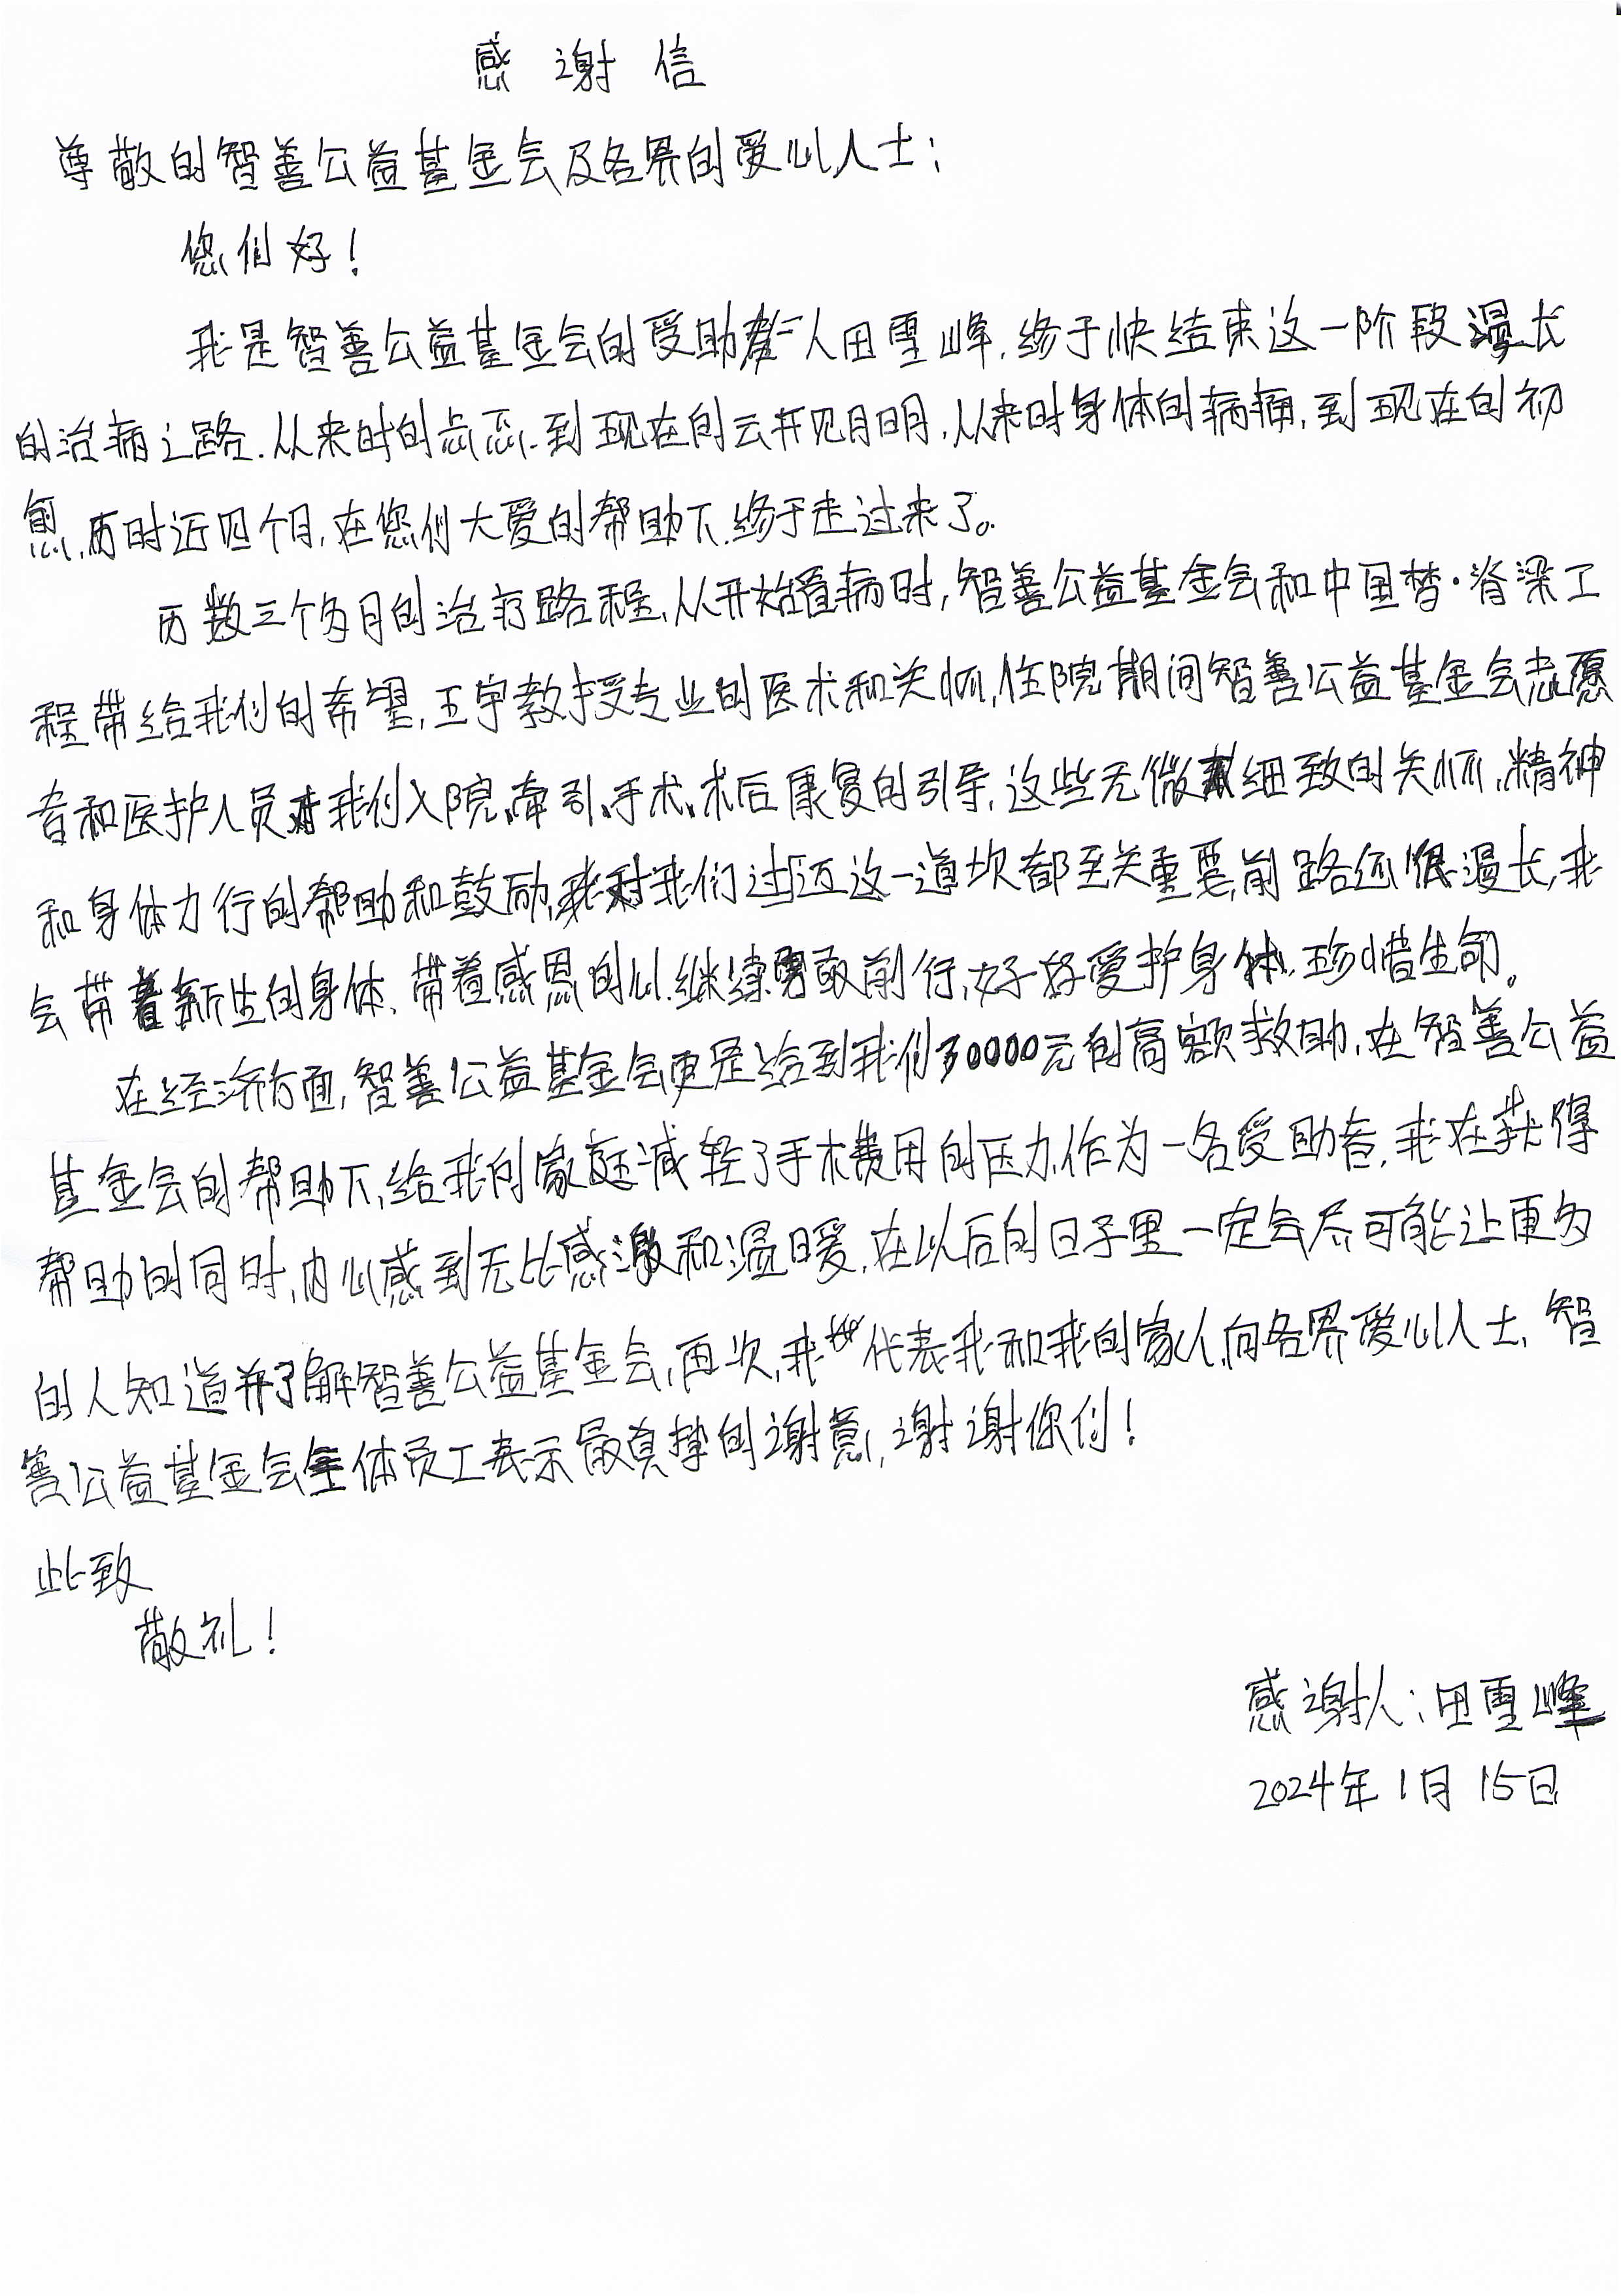 感谢信
尊敬的智善公益基金会及各界的爱心人士：
您们好！
我是智善公益基金会的受助人田雪峰，终于快结束这一阶段漫长
的治病之路．从来时的忐忑．到现在的云开见月明，从来时身体的病痛，到现在的初
愈，历时近四个月，在您们大爱的帮助下．终于走过来了。
历数三个多月的治疗路程，从开始看病时，智善公益基金会和中国梦·脊梁工
程带给我们的希望，王宇教授专业的医术和关怀，住院期间智善公益基金会志愿
者和医护人员对我们入院、牵引、手术、术后康复的引导，这些无微细致的关怀，精神
和身体力行的帮助和鼓励，对我们过迈这一道坎都至关重要，前路还很漫长，我
会带着新生的身体、带着感恩的心．继续勇敢前行，好好爱护身体．珍惜生命。
在经济方面，智善公益基金会更是给到我们0000元的高额救助，在智善公益
基金会的帮助下，给我的家庭减轻了手术费用的压力，作为一名受助者，我在获得
帮助的同时，内心感到无比感激和温暖，在以后的日子里一定会尽可能让更多
的人知道并了解智善公益基金会，再次，我代表我和我的家人，向各界爱心人士、智
善公益基金会全体员工表示最真挚的谢意，谢谢你们！
此致
敬礼！
感谢人：田雪峰
2024年1月15日